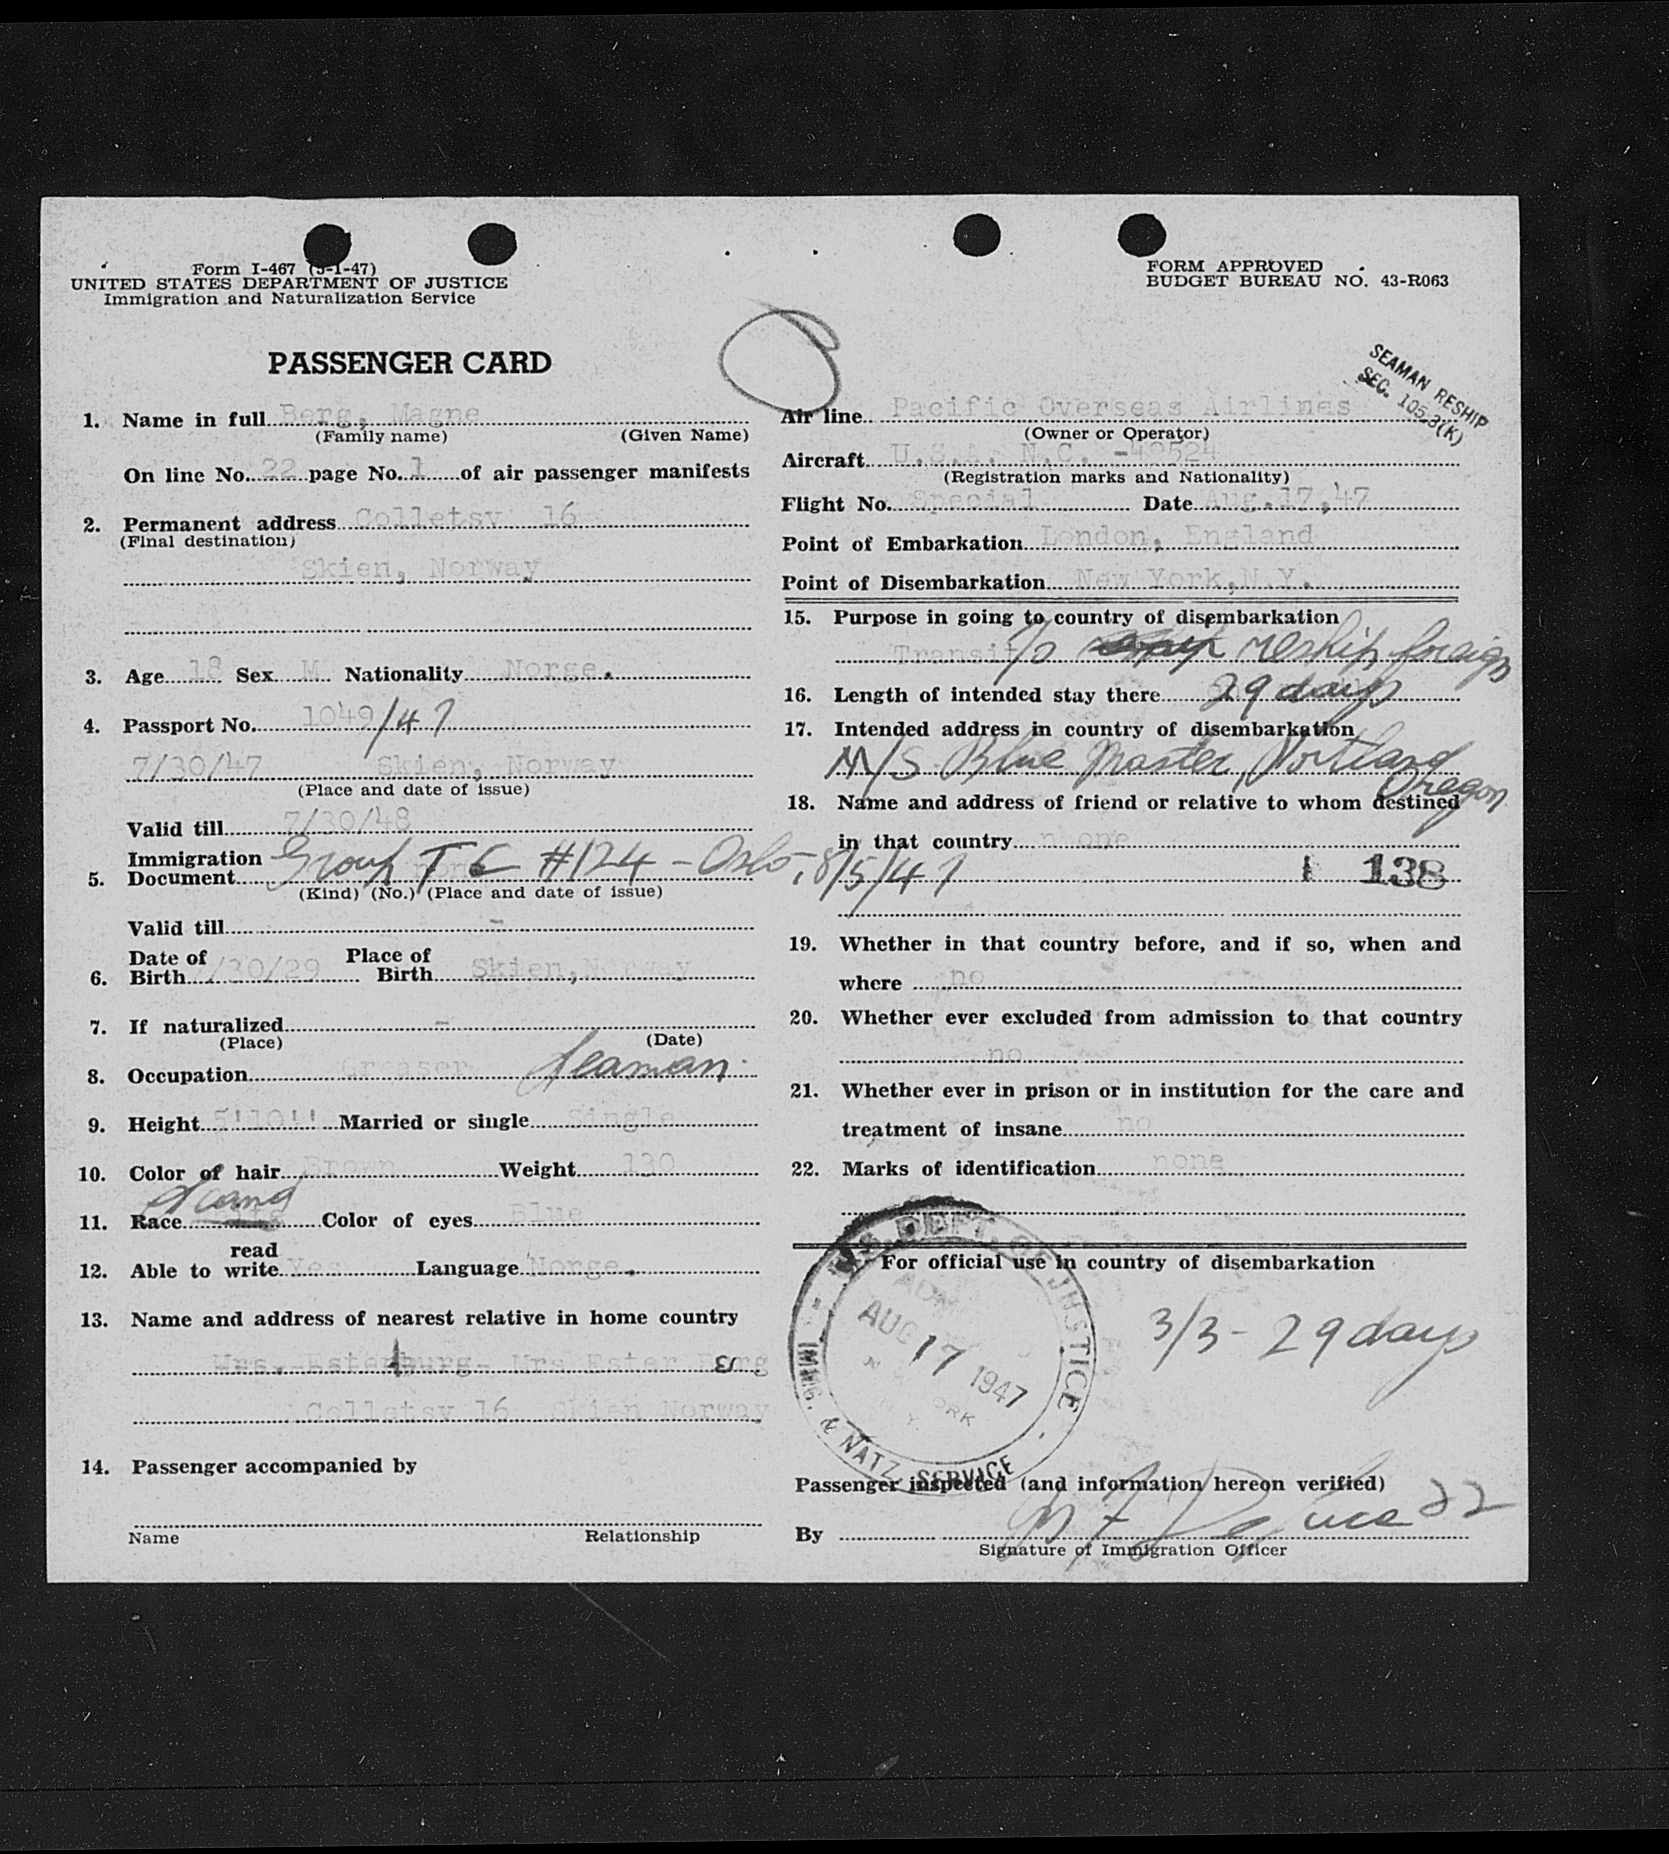 Form I-467 (5-1-47)
UNITED STATES DEPARTMENT OF JUSTICE
Immigration and Naturalization Service
PASSENGER CARD
1. Name in full Berg, Magne
(Family name) (Given Name)
On line No. 22 page No. 1 of air passenger manifests
2. Permanent address Colletsv 16
(Final destination)
Skien, Norway
3. Age 18 Sex M Nationality Norge.
4. Passport No. 1049/47
7/30/47 Skien, Norway
(Place and date of issue)
Valid till 7/30/48
Immigration
5. Document Group T C #124 - Oslo - 8/5/47
(Kind) (No.) (Place and date of issue)
Valid till -
Date of Place of
6. Birth /30/29 Birth Skien, Norway
7. If naturalized -
(Place) (Date)
8. Occupation Greaser Seaman
9. Height 5'10'' Married or single Single
10. Color of hair Brown Weight 130
Scand
11. Race Color of eyes Blue
read
12. Able to write Yes Language Norge.
13. Name and address of nearest relative in home country
Mrs. Ester Mrs Ester Berg
Colletsv 16 Skien Norway
14. Passenger accompanied by
Name Relationship
FORM APPROVED
BUDGET BUREAU NO. 43-R063
SEAMAN RESHIP
SEC. 105.3(K)
Air line Pacific Overseas Airlines
(Owner or Operator)
Aircraft U.S.A. N.C. -42524
(Registration marks and Nationality)
Flight No. Special Date Aug.17,47
Point of Embarkation London, England
Point of Disembarkation New York,N.Y.
15. Purpose in going to country of disembarkation
Transit T/O reship foreign
16. Length of intended stay there 29 days
17. Intended address in country of disembarkation
M/S Blue Master, Portland
Oregon
18. Name and address of friend or relative to whom destined
in that country none
138
19. Whether in that country before, and if so, when and
where no
20. Whether ever excluded from admission to that country
no
21. Whether ever in prison or in institution for the care and
treatment of insane no
22. Marks of identification none
For official use in country of disembarkation
U.S. DEPT. OF JUSTICE
IMMIG. & NATZ. SERVICE
AUG 17 1947
3/3 - 29 days
Passenger inspected (and information hereon verified)
By 22
Signature of Immigration Officer